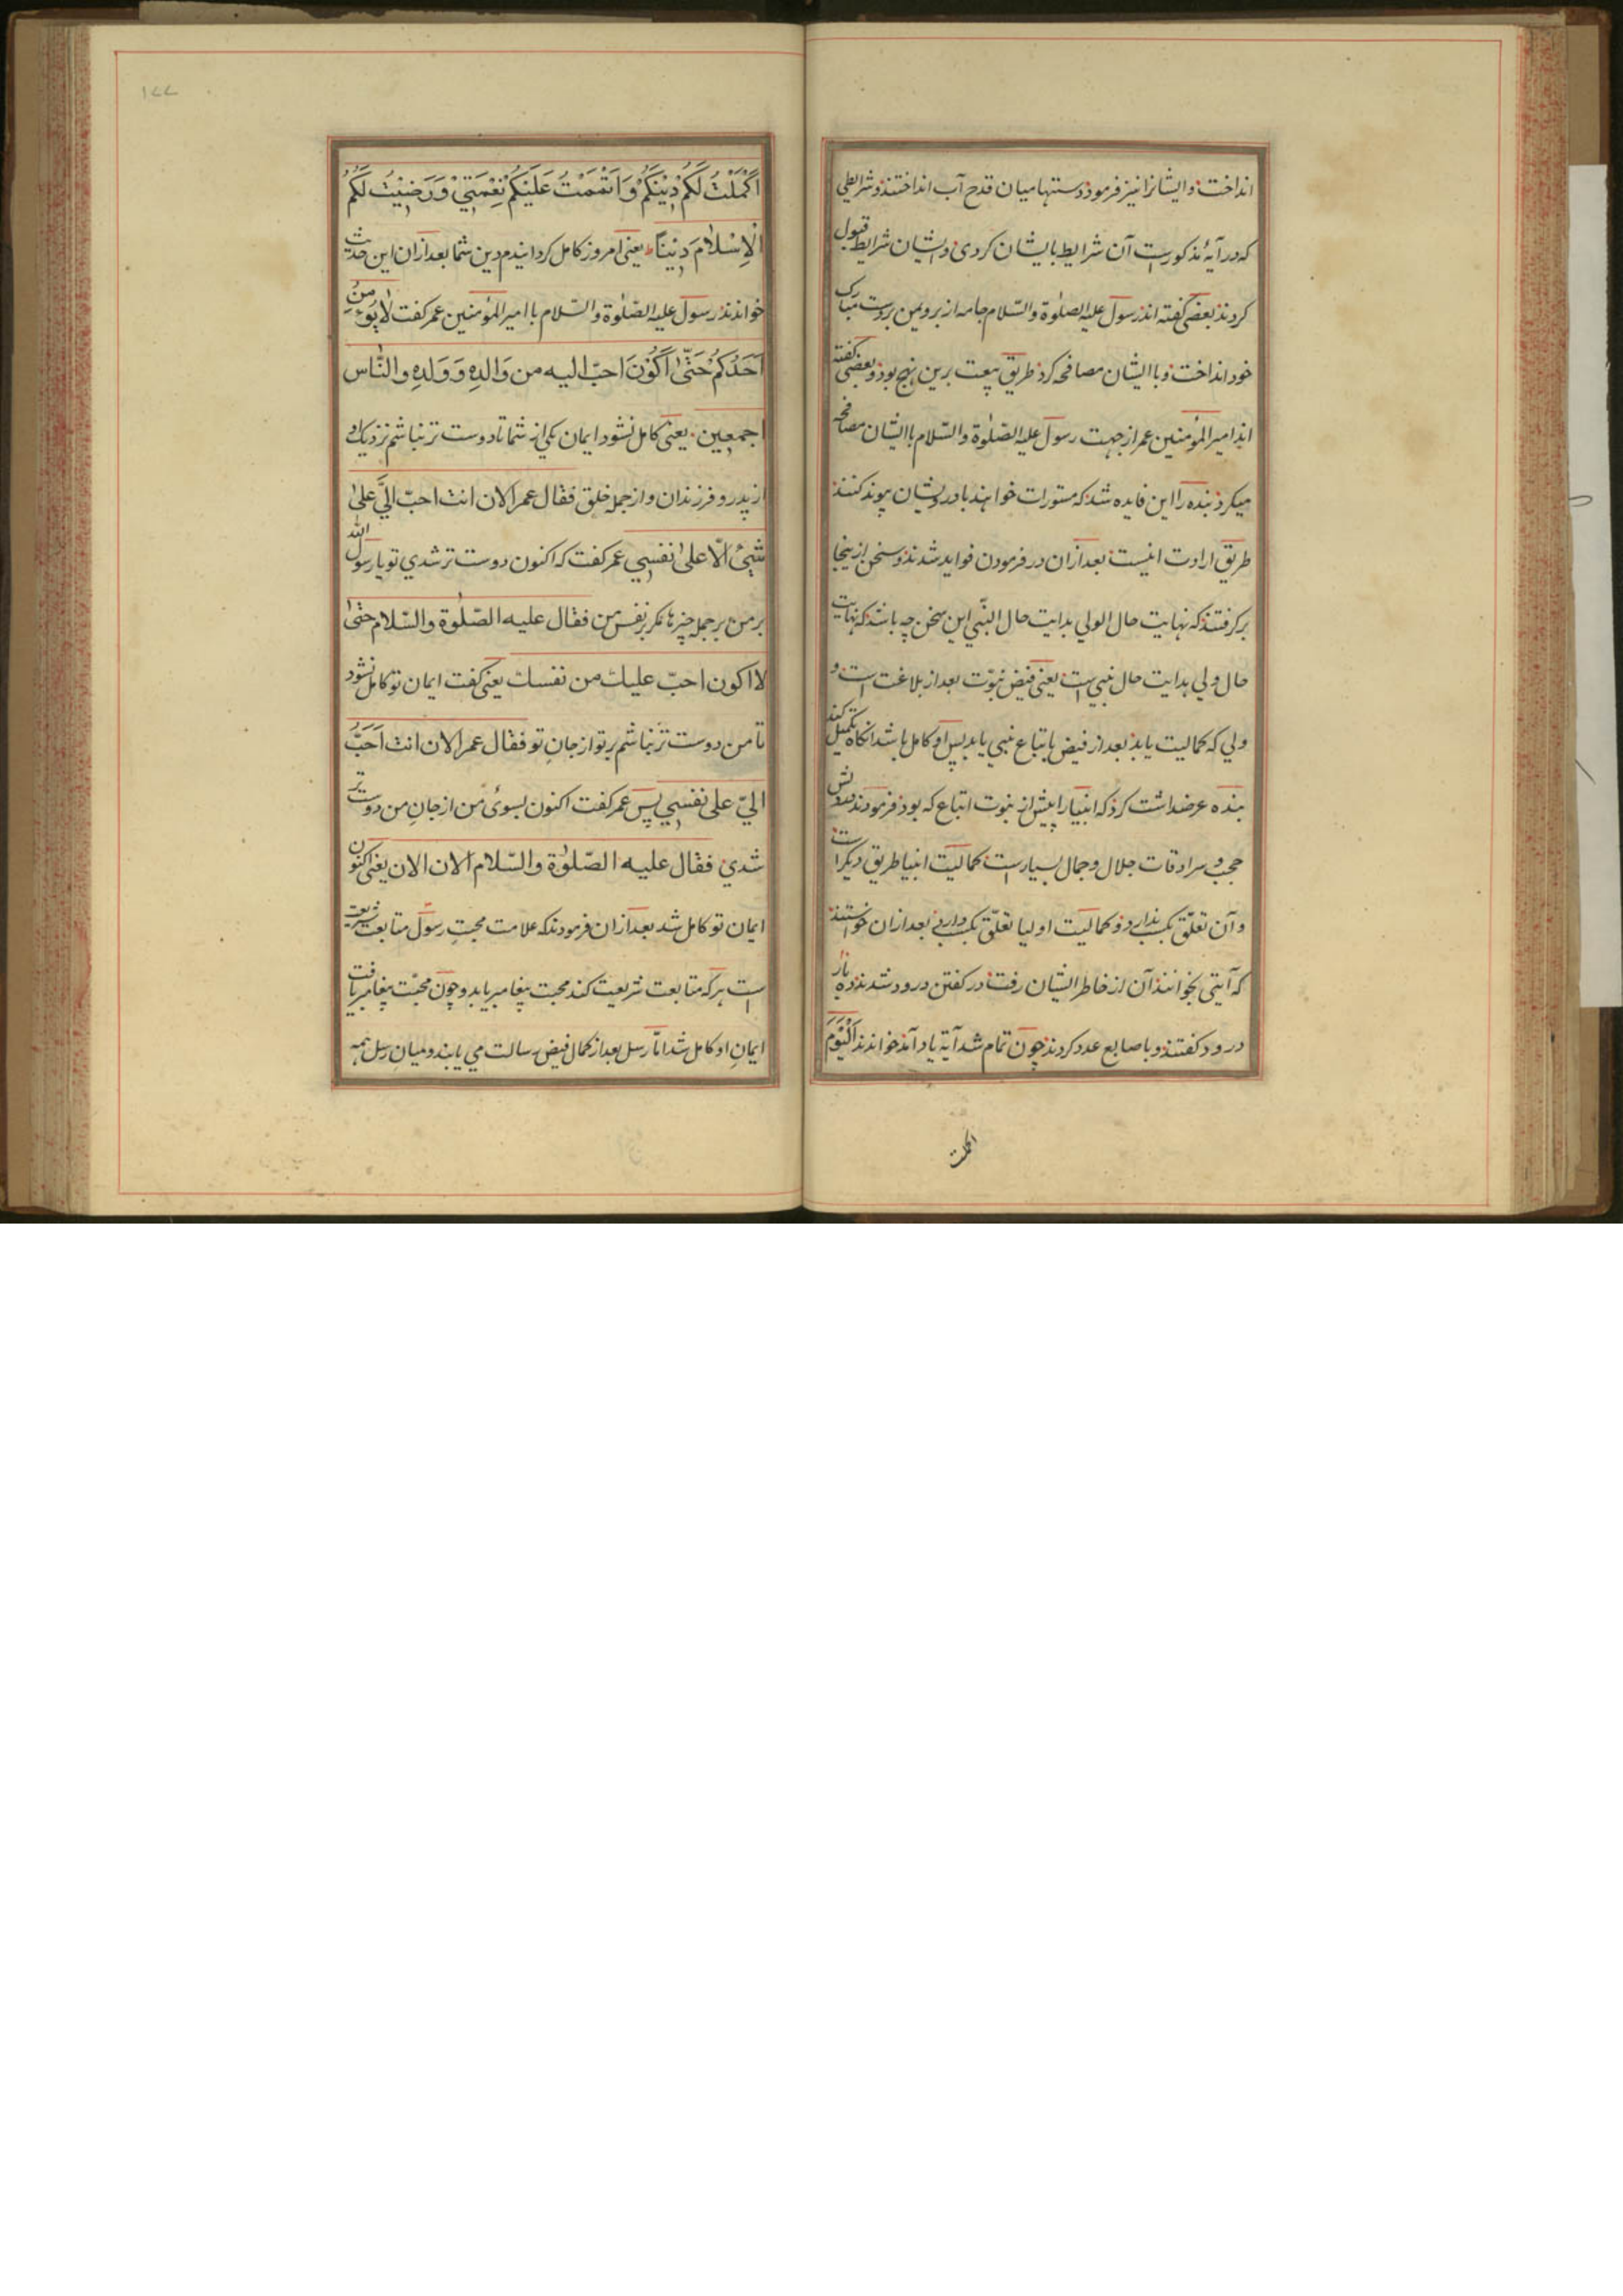 انداخت و ایشانرا نیز فرمود دستها میان قدح آب انداختند و شرایطی
که در آیهٔ مذکورست آن شرایط با ایشان کردی و ایشان شرایط قبول
کردند بعضی گفته اند رسول علیه الصلوة والسّلام جامه از برد یمن بر دست مبارک
خود انداخت و با ایشان مصافحه کرد طریق بیعت برین نهج بود و بعضی گفته
اند امیرالمؤمنین عمر از جهت رسول علیه الصّلوة والسّلام با ایشان مصافحه
میکرد بنده را این فایده شد که مستورات خواهند با درویشان پیوند کنند
طریق ارادت اینست بعد ازان در فرمودن فواید شدند و سخن ازینجا
برکرفتند که نهایت حال الولی بدایت حال النّبی این سخن چه باشد که نهایت
حال ولی بدایت حال نبی است یعنی فیض نبوّت بعد از بلاغت است و
ولی که کمالیت یابد بعد از فیض باتباع نبی یابد پس او کامل باشد آنکاه تکمیل کند
بنده عرضداشت کرد که انبیا را پیش از نبوت اتباع که بود فرمودند درویش
حجب و سرادقات جلال و جمال بسیارست کمالیت انبیا طریق دیکر است
و آن تعلّق بکسب ندارد و کمالیت اولیا تعلّق بکسب دارد بعد ازان خواستند
که آیتی بخوانند آن از خاطر ایشان رفت در کفتن درود شدند ده بار
درود کفتند و باصابع عدد کردند چون تمام شد آیة یاد آمد خواندند اَلْیَوْمَ
اکملت
۱۷۷
اَکْمَلْتُ لَکُمْ دِیْنَکُمْ وَ اَتْمَمْتُ عَلَیْکُمْ نِعْمَتِیْ وَرَضِیْتُ لَکُمُ
الْاِسْلَامَ دِیْنًا یعنی امروز کامل کردانیدم دین شما بعد ازان این حدیث
خواندند رسول علیه الصّلوة والسّلام با امیرالمؤمنین عمر کفت لا یُؤمِنُ
اَحَدُکُمْ حَتّٰی اَکُوْنَ احبّ الیه من وَالدِهِ وَ وَلدِهِ و النَّاس
اجمعین یعنی کامل نشود ایمان یکی از شما تا دوست تر نباشم نزدیک او
از پدر و فرزندان و از جمله خلق فقال عمر الان انت احبّ الیَّ علی
شیئ الّا علی نفسی عمر کفت که اکنون دوست تر شدی تو یا رسول الله
بر من بر جمله چیزها مکر بر نفس من فقال علیه الصّلوة والسّلام حتّی
لا اکون احبّ علیک من نفسک یعنی کفت ایمان تو کامل نشود
تا من دوست تر نباشم بر تو از جانِ تو فقال عمر الان انت اَحَبُّ
الیّ علی نفسی پس عمر کفت اکنون بسوئ من از جانِ من دوست تر
شدی فقال علیه الصّلوٰة والسّلام الان الان یعنی اکنون
ایمان تو کامل شد بعد ازان فرمودند که علامت محبتِ رسول متابعت شریعت
است هر که متابعت شریعت کند محبت پیغامبر یابد و چون محبّت پیغامبر یافت
ایمانِ او کامل شد امّا رسل بعد از کمال فیض رسالت می یابند و میان رسل همه